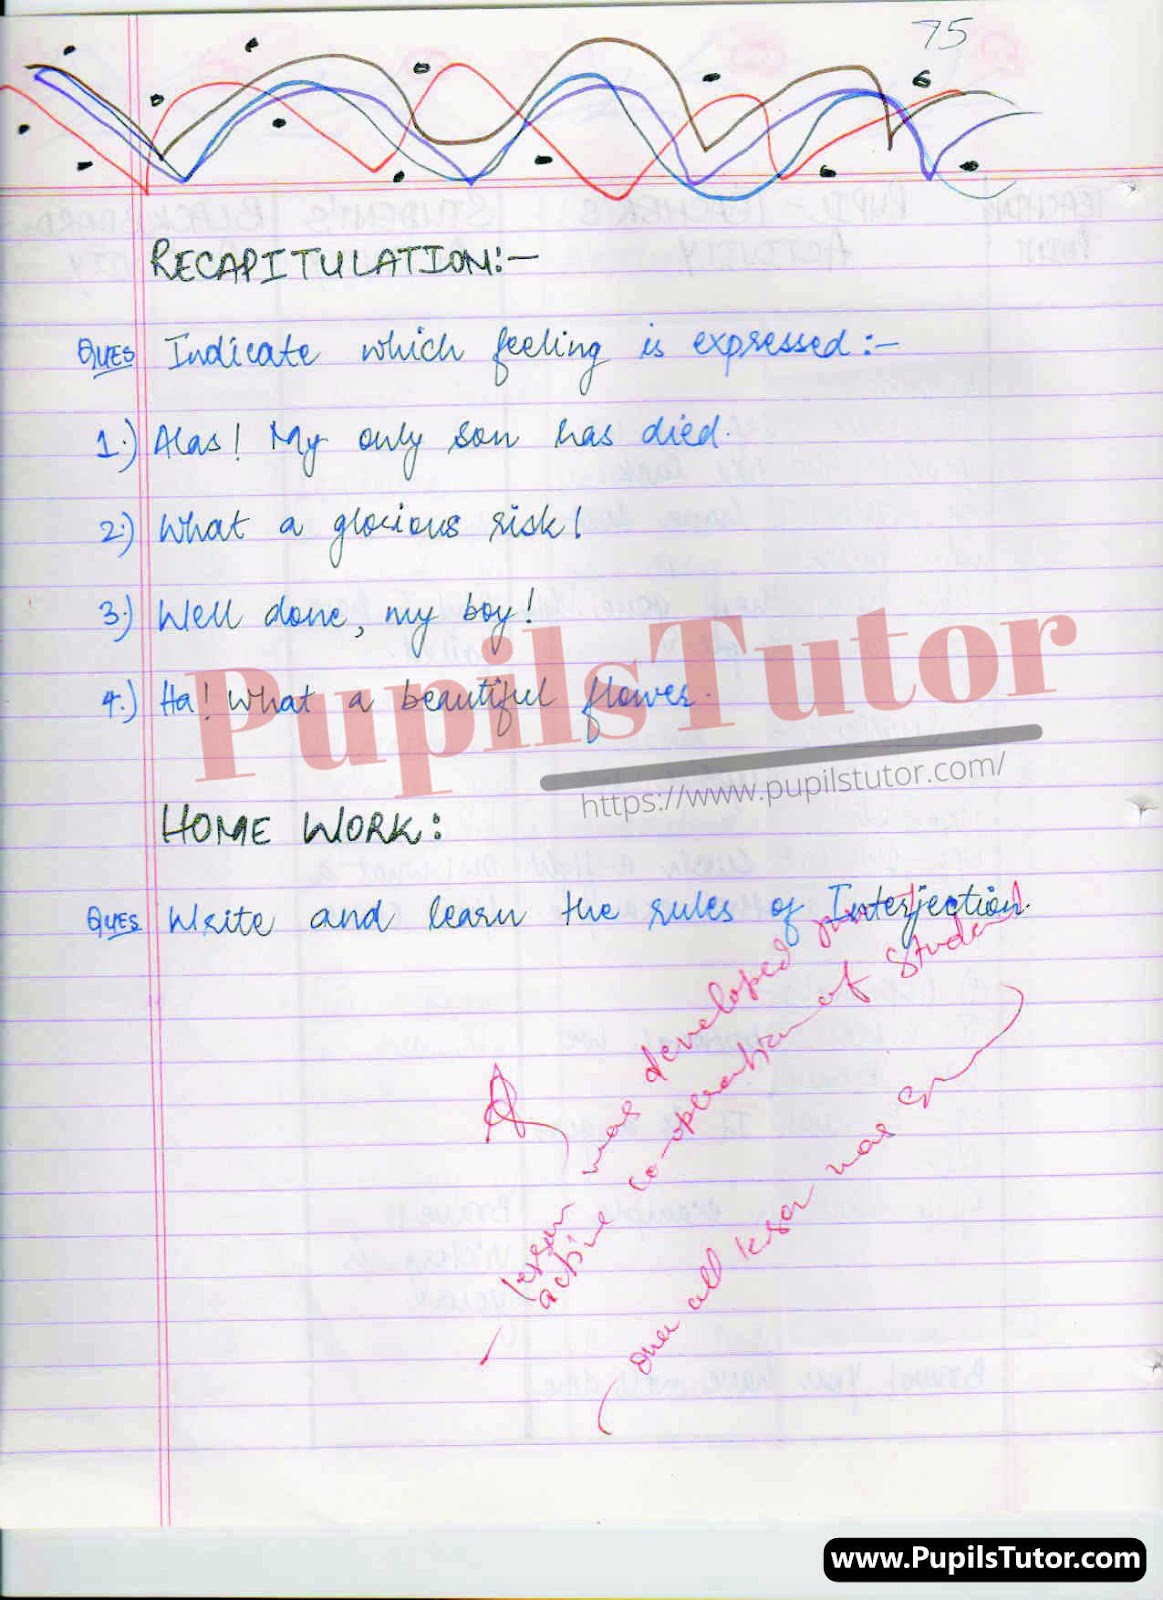 75
RECAPITULATION:-
QUES Indicate which feeling is expressed:-
1.) Alas! My only son has died.
2.) What a glorious risk!
3.) Well done, my boy!
4.) Ha! What a beautiful flower.
PupilsTutor
https://www.pupilstutor.com/
HOME WORK:
QUES Write and learn the rules of Interjection.
- lesson was developed
active co-operation of Student
over all lesson was
www.PupilsTutor.com